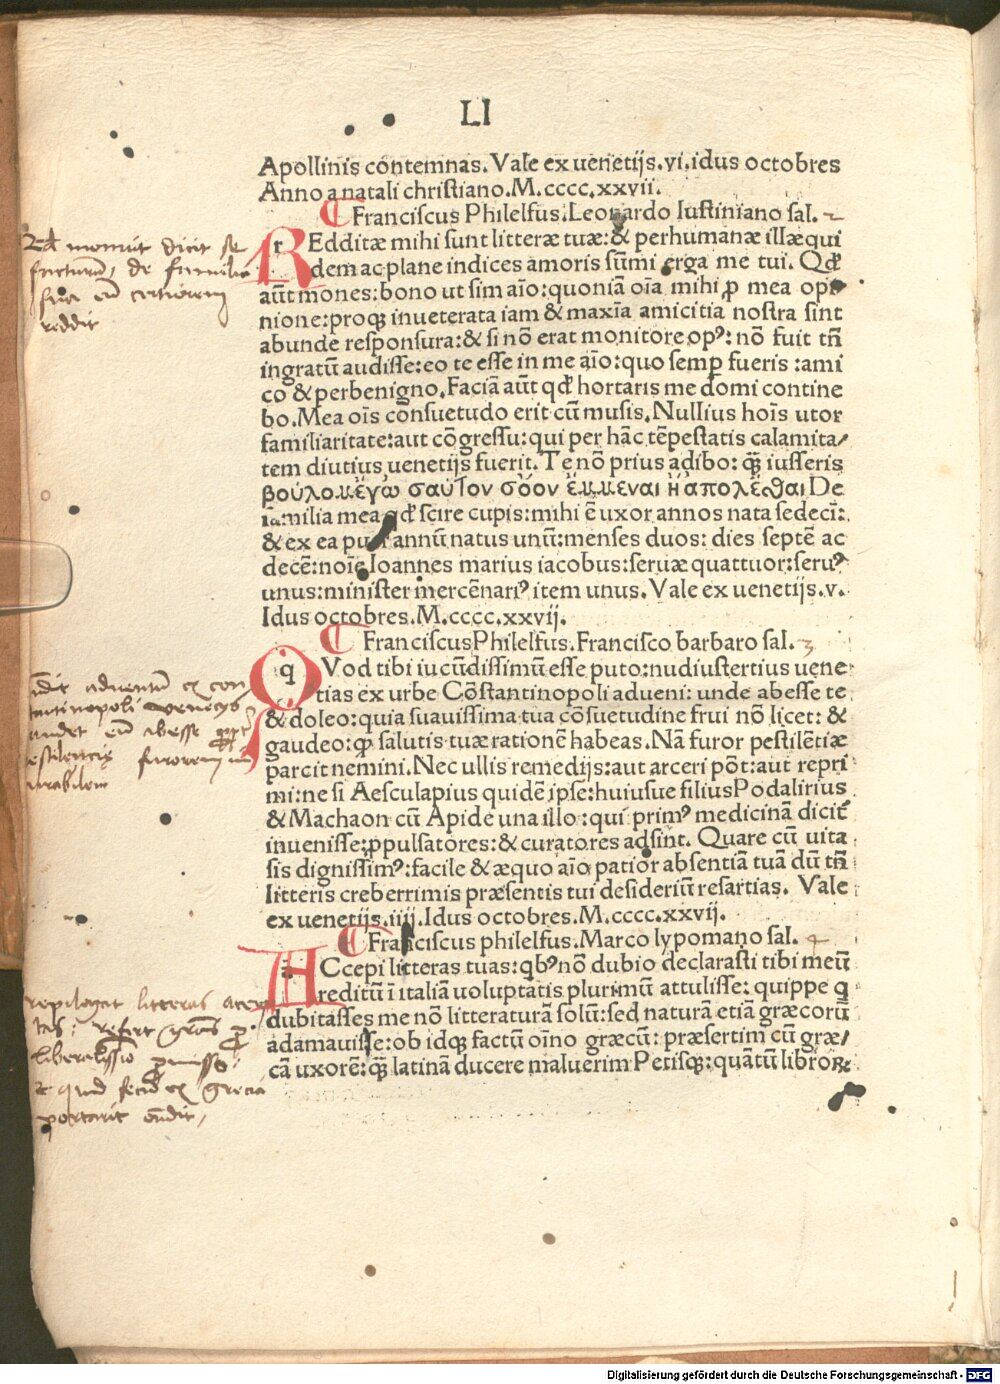 LI
Apollinis contemnas. Vale ex uenetijs. vi. idus octobres
Anno a natali christiano. M.cccc.xxvii.
Franciscus Philelfus. Leonardo Iustiniano sal. 2
REdditæ mihi sunt litteræ tuæ: & perhumanæ illæ qui
dem ac plane indices amoris sũmi erga me tui. Qđ
aũt mones: bono ut sim aĩo: quoniã oĩa mihi ꝓ mea opi
nione: proqꝫ inueterata iam & maxĩa amicitia nostra sint
abunde responsura: & si nõ erat monitore opꝰ: nõ fuit tñ
ingratũ audisse: eo te esse in me aĩo: quo semꝑ fueris: ami
co & perbenigno. Faciã aũt qđ hortaris me domi contine
bo. Mea oĩs consuetudo erit cũ musis. Nullius hoĩs utor
familiaritate: aut cõgressu: qui per hãc tẽpestatis calamita/
tem diutius uenetijs fuerit. Te nõ prius adibo: q̃ꝫ iusseris
βούλομ' ἔγὼ σαυτον σόον ἔμμεναι ἢ ἀπολέσθαι De
familia mea qđ scire cupis: mihi ẽ uxor annos nata sedecĩ:
& ex ea puer annũ natus unũ: menses duos: dies septẽ ac
decẽ: noĩe Ioannes marius iacobus: seruæ quattuor: seruꝰ
unus: minister mercẽnariꝰ item unus. Vale ex uenetijs. v.
Idus octobres. M.cccc.xxvij.
Franciscus Philelfus. Francisco barbaro sal. 3
QVod tibi iucũdissimũ esse puto: nudiustertius uene
tias ex urbe Cõstantinopoli adueni: unde abesse te
& doleo: quia suauissima tua cõsuetudine frui nõ licet: &
gaudeo: ꝙ salutis tuæ rationẽ habeas. Nã furor pestilẽtiæ
parcit nemini. Nec ullis remedijs: aut arceri põt: aut repri
mi: ne si Aesculapius quidẽ ipse: huiusue filius Podalirius
& Machaon cũ Apide una illo: qui primꝰ medicinã dicit̃
inuenisse: ꝓpulsatores: & curatores adsint. Quare cũ uita
sis dignissimꝰ: facile & æquo aĩo patior absentiã tuã dũ tñ
litteris creberrimis præsentis tui desideriũ resartias. Vale
ex uenetijs. iiij. Idus octobres. M.cccc.xxvij.
Franciscus philelfus. Marco lypomano sal. 4
ACcepi litteras tuas: qbꝰ nõ dubio declarasti tibi meũ
reditũ ĩ italiã uoluptatis plurimũ attulisse: quippe q
dubitasses me nõ litteraturã solũ: sed naturã etiã græcorũ
adamauisse: ob idqꝫ factũ oĩno græcũ: præsertim cũ græ/
cã uxorẽ: q̃ꝫ latinã ducere maluerim Petisqꝫ: quãtũ libroꝝ
dicit se
de familia
sua certiorem
reddit
adventum ex con
stantinopoli venecys
abesse
furorem
litteras
refert
liberalissio
ex grecia
portarit
Digitalisierung gefördert durch die Deutsche Forschungsgemeinschaft - DFG